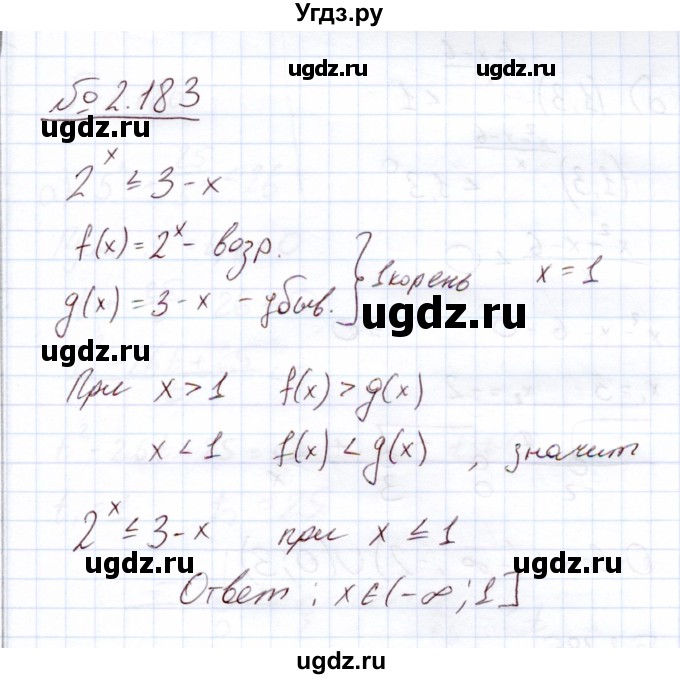 Угдз.ру
ugdz.ru ugdz.ru
№ 2.183
ugdz.ru
2^x ≤ 3 - x
f(x) = 2^x - возр.
g(x) = 3 - x - убыв. } 1 корень x = 1
ugdz.ru
ugdz.ru
При x > 1 f(x) > g(x)
ugdz.ru ugdz.ru
x < 1 f(x) < g(x) , значит
2^x ≤ 3 - x при x ≤ 1
ugdz.ru ugdz.ru
Ответ: x ∈ (-∞; 1]
ugdz.ru ugdz.ru
ugdz.ru